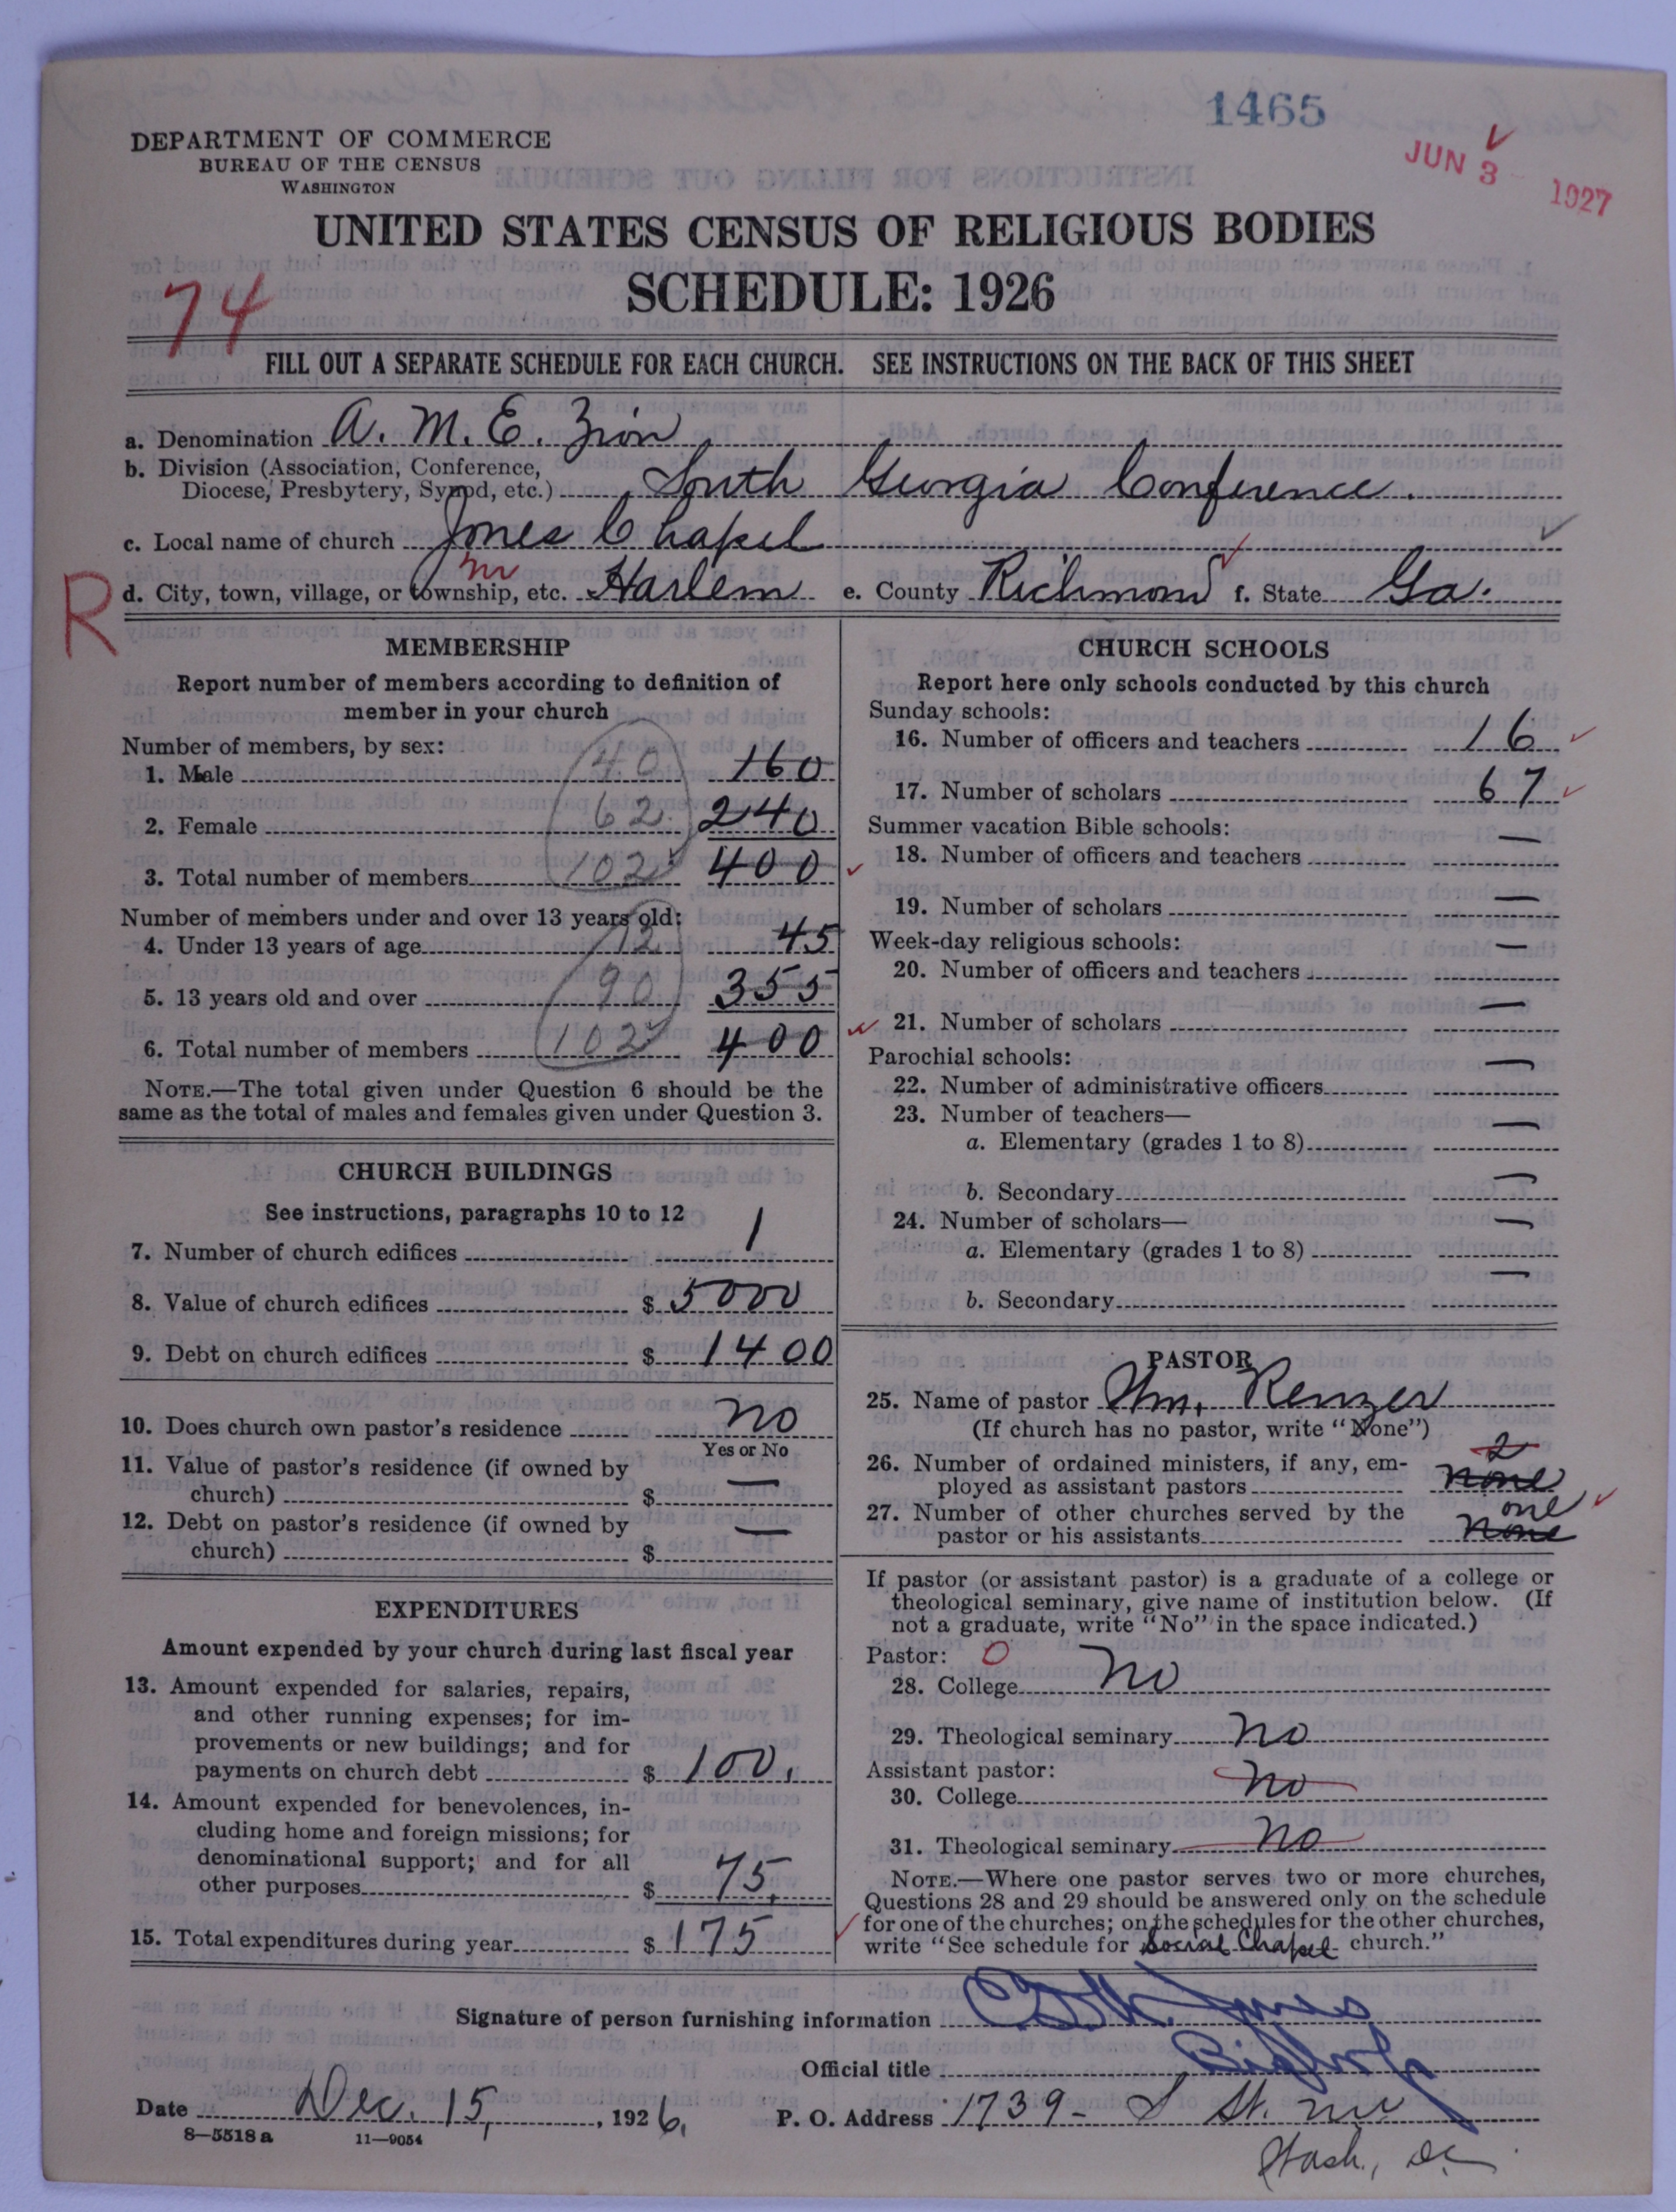 1465
JUN 3 1927
DEPARTMENT OF COMMERCE
BUREAU OF THE CENSUS
WASHINGTON
UNITED STATES CENSUS OF RELIGIOUS BODIES
SCHEDULE: 1926
74
FILL OUT A SEPARATE SCHEDULE FOR EACH CHURCH. SEE INSTRUCTIONS ON THE BACK OF THIS SHEET
a. Denomination A. M. E. Zion
b. Division (Association, Conference,
Diocese, Presbytery, Synod, etc.) South Georgia Conference.
c. Local name of church Jones Chapel
R d. City, town, village, or township, etc. Harlem e. County Richmond f. State Ga.
MEMBERSHIP
Report number of members according to definition of
member in your church
Number of members, by sex:
1. Male 40 160
2. Female 62 240
3. Total number of members 102 400
Number of members under and over 13 years old:
4. Under 13 years of age 12 45
5. 13 years old and over 90 355
6. Total number of members 102 400
NOTE.—The total given under Question 6 should be the
same as the total of males and females given under Question 3.
CHURCH BUILDINGS
See instructions, paragraphs 10 to 12
7. Number of church edifices 1
8. Value of church edifices $ 5000
9. Debt on church edifices $ 1400
10. Does church own pastor's residence no
Yes or No
11. Value of pastor's residence (if owned by
church) $ —
12. Debt on pastor's residence (if owned by
church) $ —
EXPENDITURES
Amount expended by your church during last fiscal year
13. Amount expended for salaries, repairs,
and other running expenses; for im-
provements or new buildings; and for
payments on church debt $ 100.
14. Amount expended for benevolences, in-
cluding home and foreign missions; for
denominational support; and for all
other purposes $ 75.
15. Total expenditures during year $ 175
CHURCH SCHOOLS
Report here only schools conducted by this church
Sunday schools:
16. Number of officers and teachers 16
17. Number of scholars 67
Summer vacation Bible schools:
18. Number of officers and teachers —
19. Number of scholars —
Week-day religious schools:
20. Number of officers and teachers —
21. Number of scholars —
Parochial schools:
22. Number of administrative officers —
23. Number of teachers—
a. Elementary (grades 1 to 8) —
b. Secondary —
24. Number of scholars—
a. Elementary (grades 1 to 8) —
b. Secondary —
PASTOR
25. Name of pastor Wm. Renzer
(If church has no pastor, write "None")
2
26. Number of ordained ministers, if any, em-
ployed as assistant pastors none
27. Number of other churches served by the one
pastor or his assistants None
If pastor (or assistant pastor) is a graduate of a college or
theological seminary, give name of institution below. (If
not a graduate, write "No" in the space indicated.)
Pastor: 0
28. College no
29. Theological seminary no
Assistant pastor:
30. College no
31. Theological seminary no
NOTE.—Where one pastor serves two or more churches,
Questions 28 and 29 should be answered only on the schedule
for one of the churches; on the schedules for the other churches,
write "See schedule for Social Chapel church."
Signature of person furnishing information Jones
Official title Bishop
Date Dec. 15, 1926, P. O. Address 1739- S St. nw
8—5518 a 11—9054
Wash., DC.